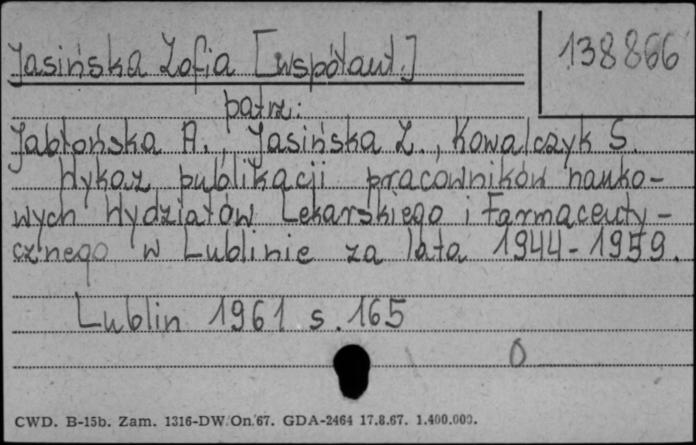 Jasińska Zofia [współaut.]
138866
patrz:
Jabłońska A., Jasińska Z., Kowalczyk S.
Wykaz publikacji pracowników nauko-
wych Wydziałów Lekarskiego i Farmaceuty-
cznego w Lublinie za lata 1944-1959.
Lublin 1961 s. 165
0
CWD. B-15b. Zam. 1316-DW/On/67. GDA-2464 17.8.67. 1.400.000.